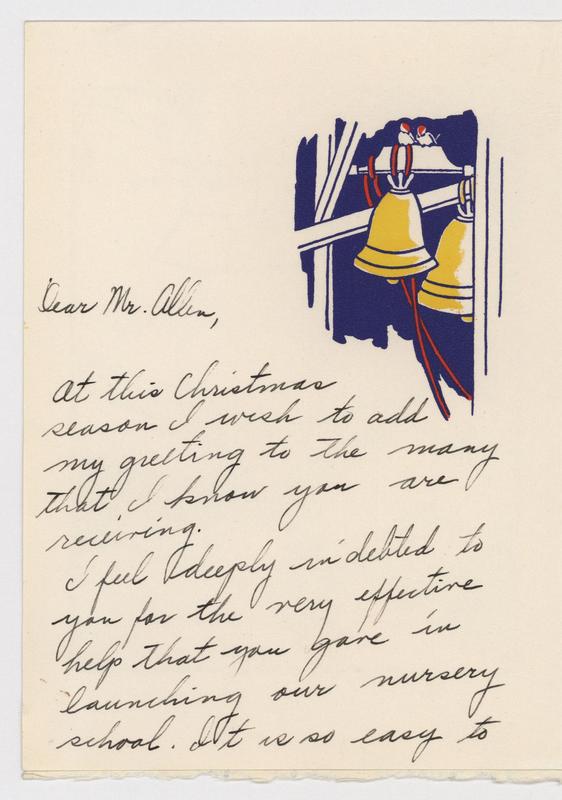 Dear Mr. Allen,
At this Christmas
season I wish to add
my greeting to the many
that I know you are
receiving.
I feel deeply in debted to
you for the very effective
help that you gave in
launching our nursery
school. It is so easy to